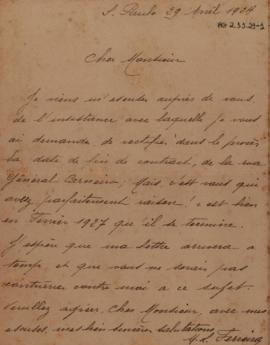 S. Paulo 29 Avril 1924
Cher Monsieur
Je viens m'excuser auprès de vous
de l'insistance avec laquelle je vous
ai demandé de rectifier dans le procès
la date de fin de contract, de la rua
Général Carneiro; Mais, c'est vous qui
avez parfaitement raison! c'est bien
en Février 1927 qu'il se termine.
J'espère que ma lettre arrivera a
temps et que vous ne serez pas
contre moi a ce sujet.
Veuillez agréer, Cher Monsieur, avec mes
excuses, mes bien sincères salutations
Ferreira